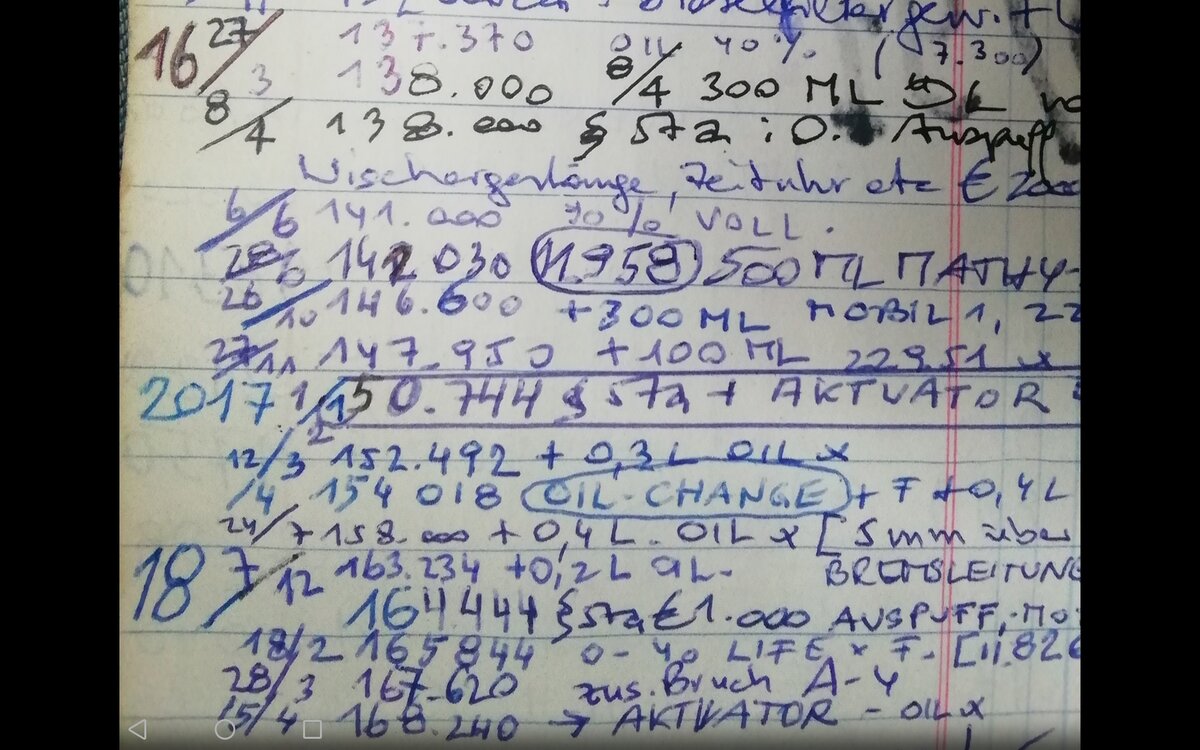 gew. +
16 27/3 137.370 OIL 40% (7.300)
138.000 8/4 300 ML
8/4 138.000 § 57a : O. Auspuff
Wischergestänge, Zeituhr etc €
6/6 141.000 70% VOLL.
28/6 142 030 11.958 500 ML MATHY-
26/10 146.600 +300 ML MOBIL 1, 22
27/11 147.950 +100 ML 229.51 x
2017 1/2 150.744 § 57a + AKTVATOR
12/3 152.492 + 0,3 L OIL x
/4 154 018 OIL-CHANGE + F + 0,4 L
24/7 158.000 + 0,4 L. OIL x [5 mm über
7/12 163.234 +0,2 L BREMSLEITUNG
18 164444 § 57a € 1.000 AUSPUFF, MO
18/2 165844 0-40 LIFE x F. [11.826
28/3 167.620 zus. Bruch A-4
15/4 168.240 → AKTVATOR - OIL x